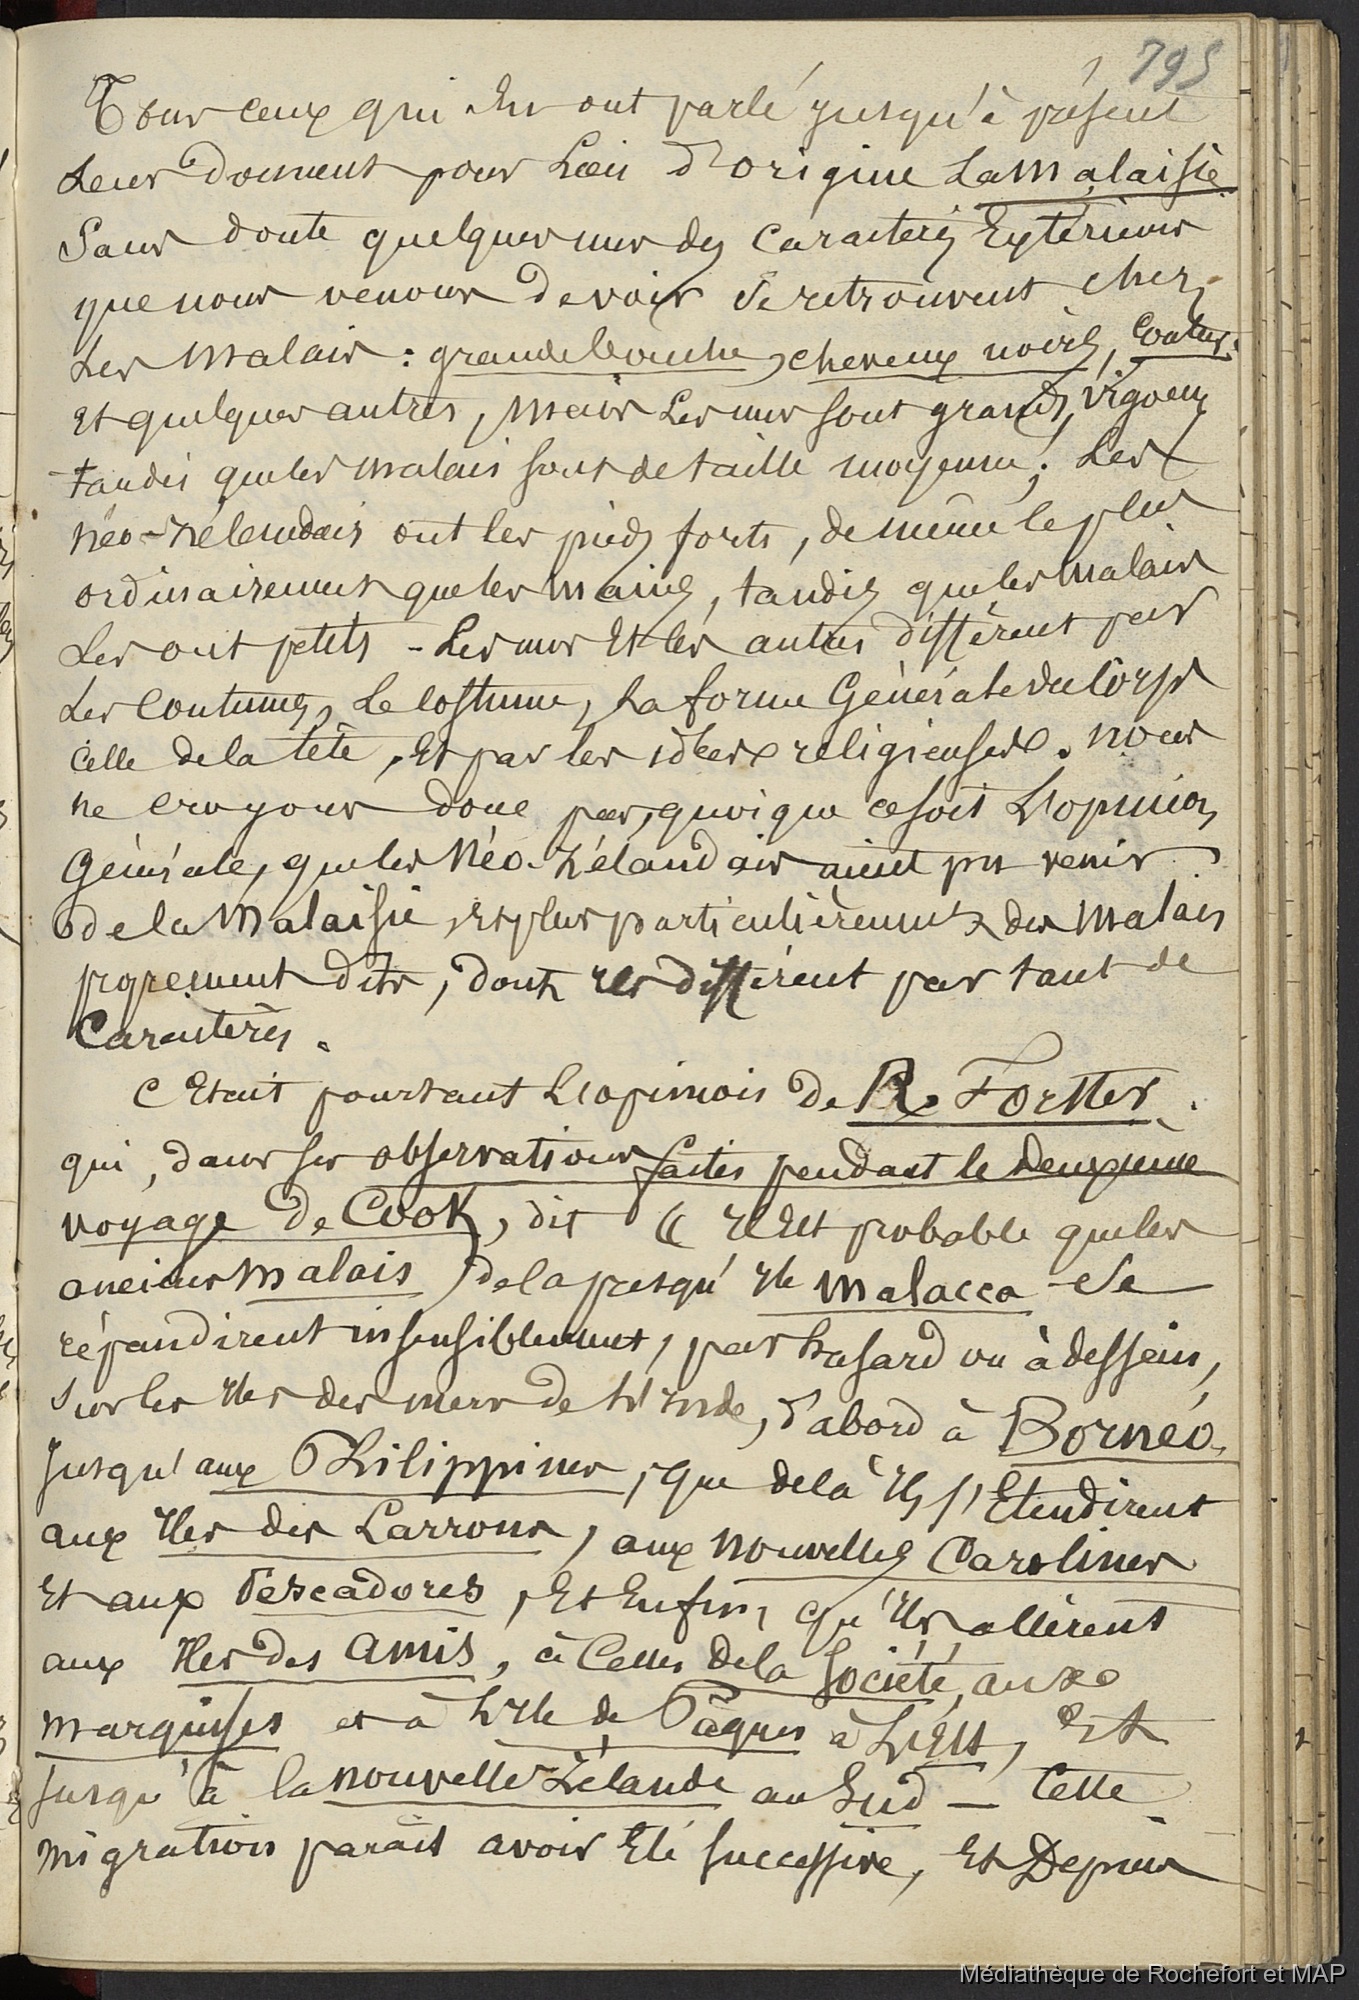 795
Tous ceux qui en ont parlé jusqu'à présent
Leur donnent pour Lieu d'origine La Malaisie
Sans doute quelques uns des Caractères Extérieurs
que nous venons de voir se retrouvent chez
Les Malais : grande bouche, cheveux noirs,
Et quelques autres, mais Les uns sont grands, vigoureux
tandis que les malais sont de taille moyenne ; Les
néo-zélandais ont les pieds forts, de même le plus
ordinairement que les mains, tandis que les malais
Les ont petits - Les uns Et les autres diffèrent par
Les Coutumes, Le Costume, La forme Générale du Corps
celle de la tête, Et par les idées religieuses. nous
ne croyons donc pas, quoique ce soit L'opinion
Générale, que les Néo-Zélandais aient pu venir
de la Malaisie, et plus particulièrement des Malais
proprement dits, dont ils diffèrent par tant de
Caractères.
C'Etait pourtant L'opinion de R. Forster
qui, dans ses observations faites pendant le deuxième
voyage de Cook, dit « Il Est probable que les
anciens Malais, de la presqu'Ile Malacca se
répandirent insensiblement, par hasard ou à dessein,
Sur les Iles des mers de L'Inde, d'abord à Bornéo
Jusqu'aux Philippines, que delà Ils s'Etendirent
aux Iles des Larrons, aux nouvelles Carolines
Et aux Pescadores, Et Enfin, qu'Ils allèrent
aux Iles des Amis, à Celles de la Société, aux
marquises et à L'Ile de Pâques à L'Est, Et
Jusqu'à la nouvelle Zélande au Sud — Cette
migration paraît avoir Eté successive, Et Depuis
Médiathèque de Rochefort et MAP